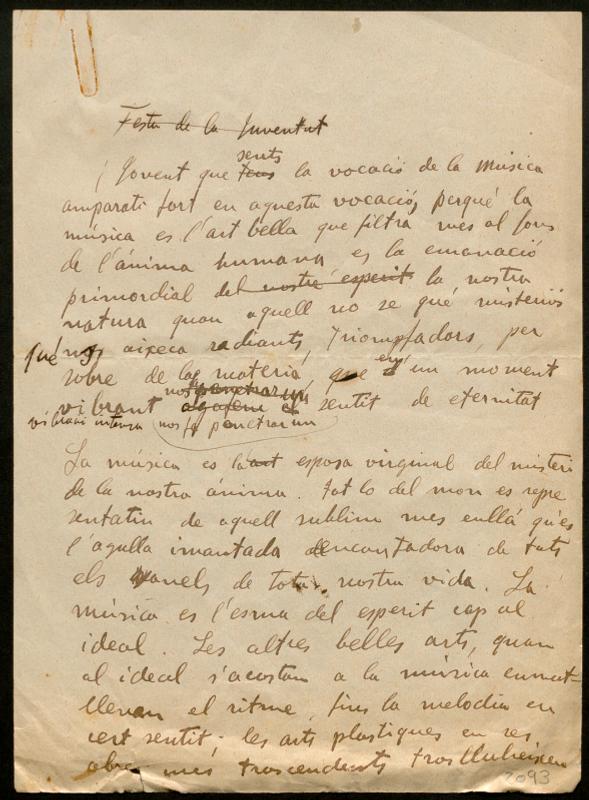 Festa de la Juventut
¡ Jovent que tens sents la vocació de la Música
amparati fort en aquesta vocació, perqué la
música es l'art bella que filtra mes al fons
de l'ánima humana es la emanació
primordial del nostre esperit la nostra
natura quan aquell no se qué misteriós
qué nos aixeca radiants, triomfadors, per
sobre de la materia, que en un moment
vibrant nos penetrarun sentit de eternitat
vibració intensa nos fa penetrar un
La música es la art esposa virginal del misteri
de la nostra ánima. Tot lo del mon es repre
sentatiu de aquell sublim mes enllá qu'es
l'agulla imantada encantadora de tots
els anels de tota nostra vida. La
música es l'esma del esperit cap al
ideal. Les altres belles arts, quan
al ideal s'acostan a la música enmat-
llevan el ritme, fins la melodia en
cert sentit; les arts plastiques en ses
obres mes trascendents trasllueixen
2093